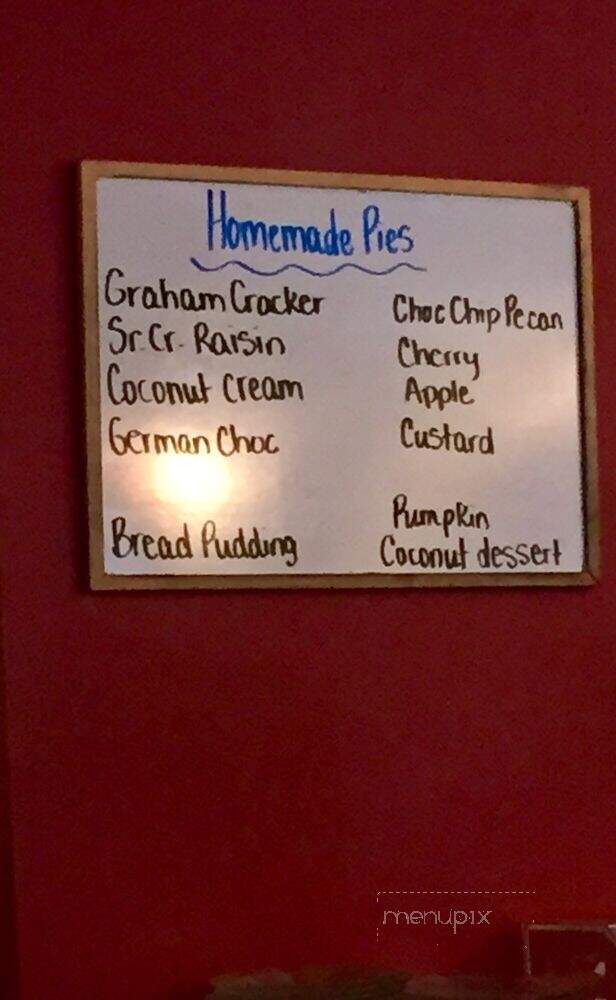 Homemade Pies
Graham Cracker
Sr. Cr. Raisin
Coconut Cream
German Choc
Bread Pudding
Choc Chip Pecan
Cherry
Apple
Custard
Pumpkin
Coconut dessert
menupix